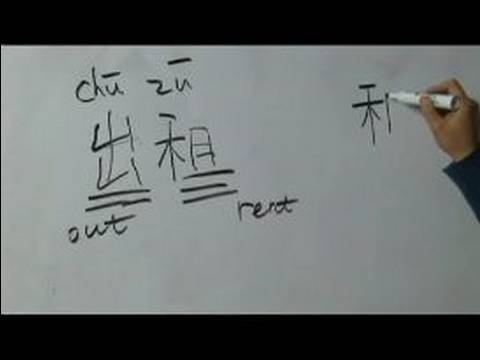 chū zū
出租
out rent